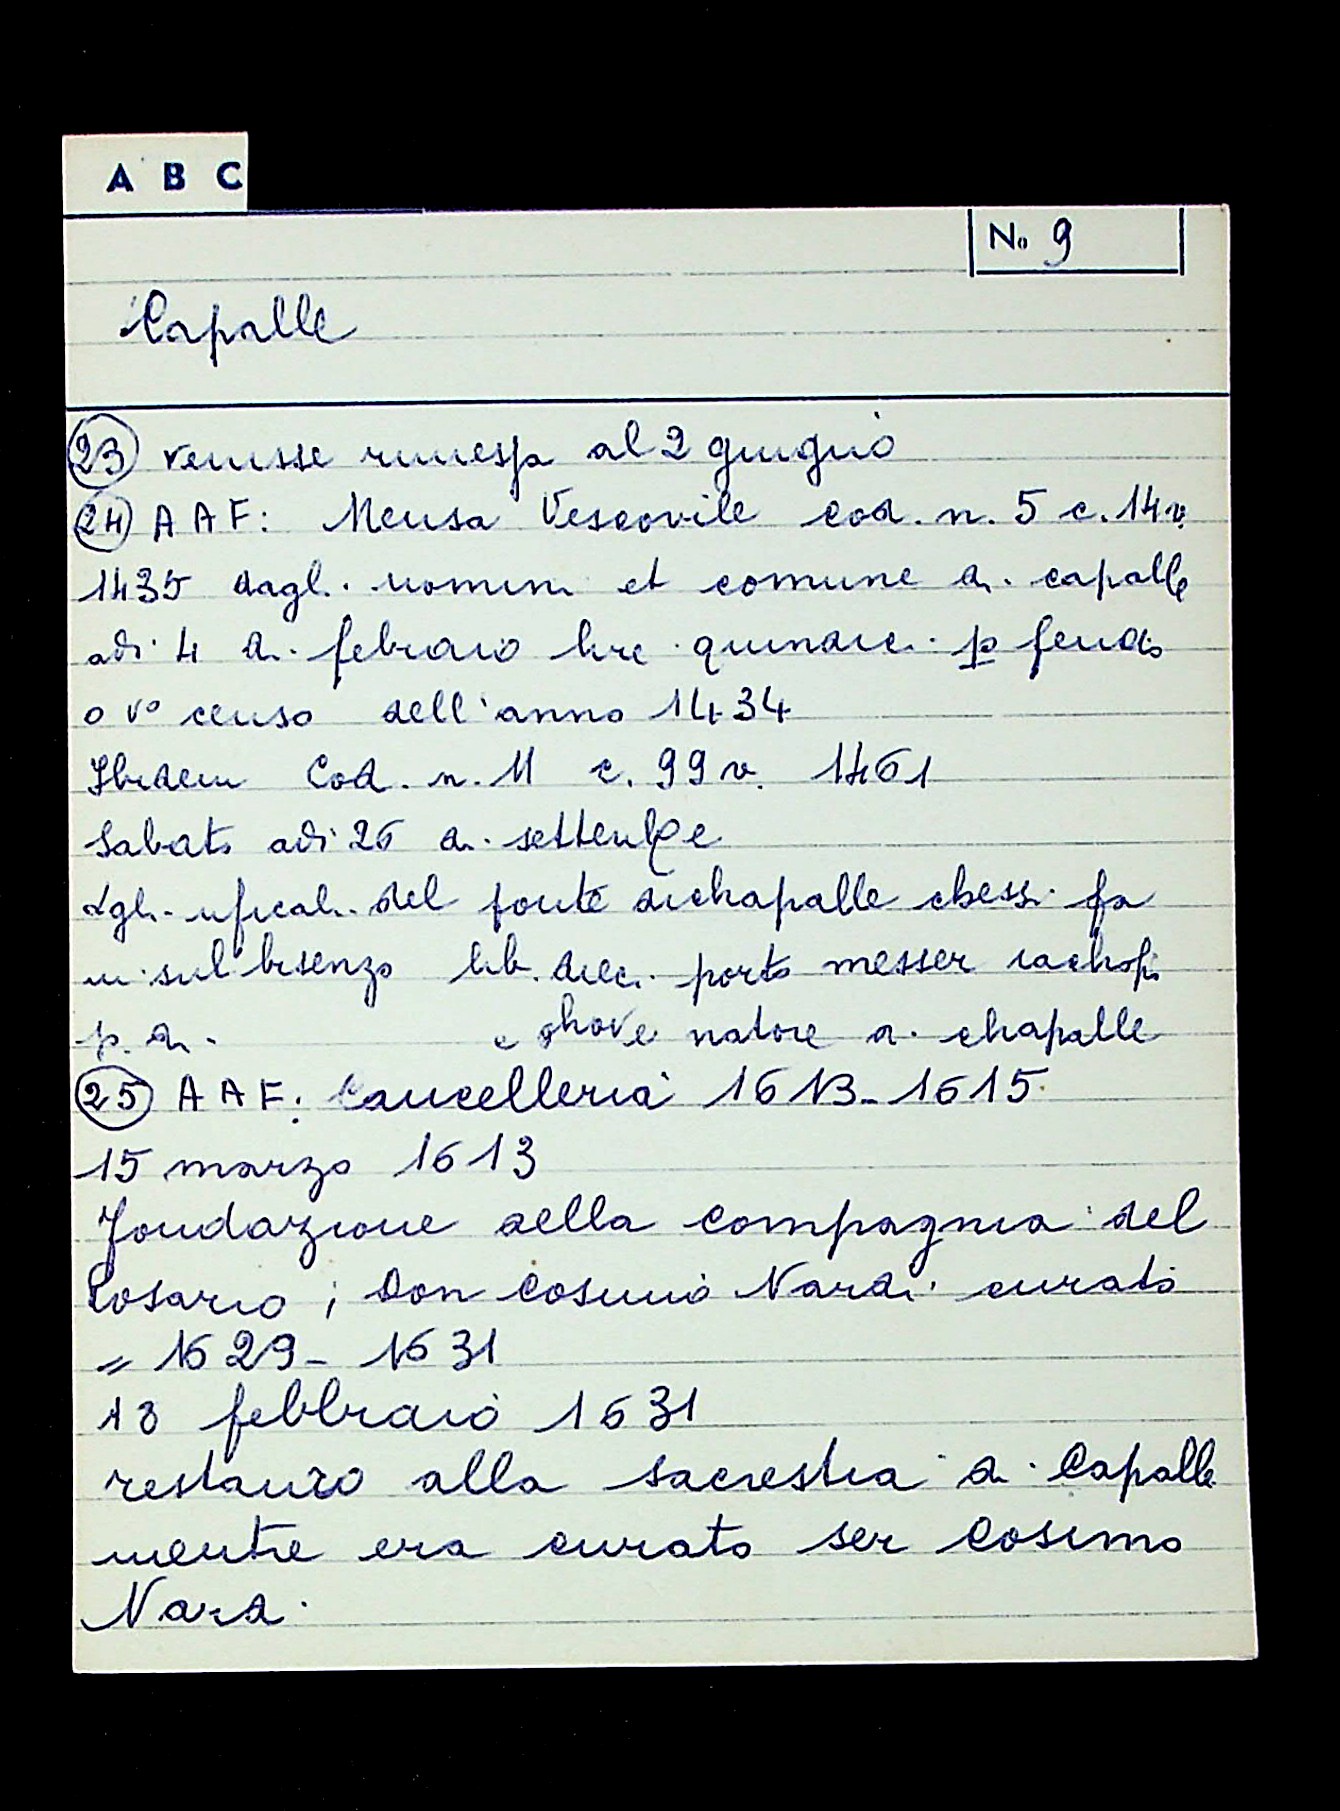 A B C
No 9
Capalle
23 venisse rimessa al 2 giugno
24 A A F: Mensa Vescovile cod. n. 5 c. 14v.
1435 dagli uomini et comune di capalle
adi 4 di febraio lire quindici p feudo
o vo censo dell'anno 1434
Ibidem Cod. n. 11 c. 99 v. 1461
Sabato adi 26 di settenbre
dgli uficali del ponte dichapalle chessi fa
in sul bisenzo lib. dieci porto messer iachopi
p. di e ghovernatore di chapalle
25 A A F: Cancelleria 1613-1615
15 marzo 1613
Fondazione della compagnia del
Rosario; Don Cosimo Nardi curato
= 1629-1631
13 febbraio 1631
restauro alla sacrestia di Capalle
mentre era curato ser Cosimo
Nardi